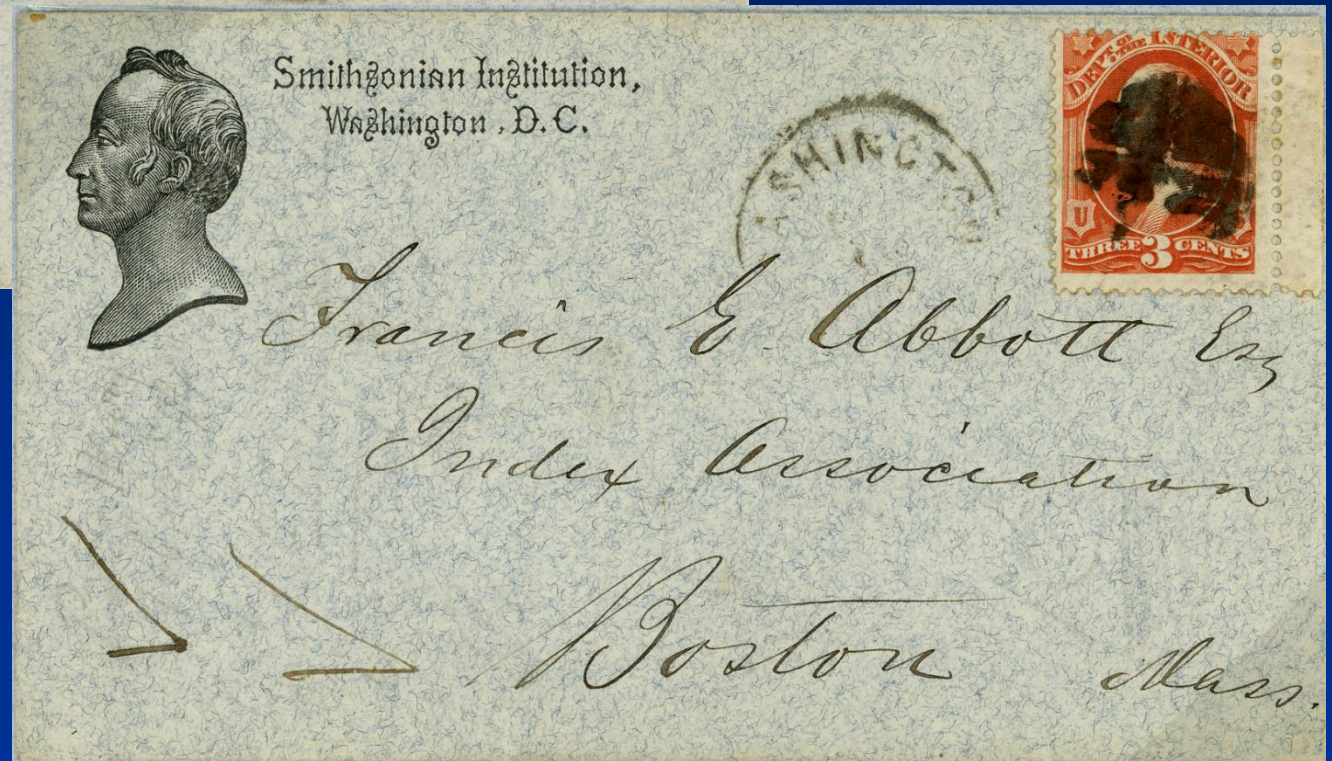 Smithsonian Institution,
Washington, D.C.
SHINGTO
DEPT. OF THE INTERIOR
U
THREE 3 CENTS
Francis E. Abbott Esq
Index Association
Boston
Mass.